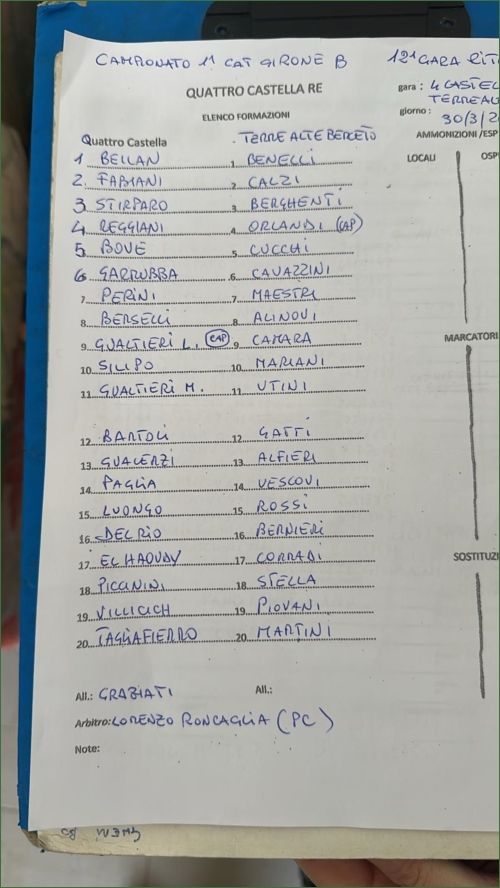 CAMPIONATO 1ª CAT GIRONE B
QUATTRO CASTELLA RE
gara : 4 CASTEL
TERREAL
giorno : 30/3/2
ELENCO FORMAZIONI
AMMONIZIONI/ESP
LOCALI OSP
Quattro Castella TERRE ALTE BERCETO
1 BELLAN 1 BENELLI
2. FABIANI 2 CALZI
3 STIRPARO 3 BERGHENTI
4 REGGIANI 4 ORLANDI (CAP)
5 BOVE 5 CUCCHI
6 GARRUBBA 6 CAVAZZINI
7 PERINI 7 MAESTRI
8 BERSELLI 8 ALINOVI
9 GUALTIERI L. CAP 9 CAMARA
MARCATORI
10 SILIPO 10 MARIANI
11 GUALTIERI M. 11 UTINI
12 BARTOLI 12 GATTI
13 GUALERZI 13 ALFIERI
14 PAGLIA 14 VESCOVI
15 LUONGO 15 ROSSI
16 DEL RIO 16 BERNIERI
17 EL HAOUDY 17 CORRADI
SOSTITUZI
18 PICCININI 18 STELLA
19 VILLICICH 19 PIOVANI
20 TAGLIAFIERRO 20 MARTINI
All.: GRAZIATI All.:
Arbitro: LORENZO RONCAGLIA (PC)
Note: